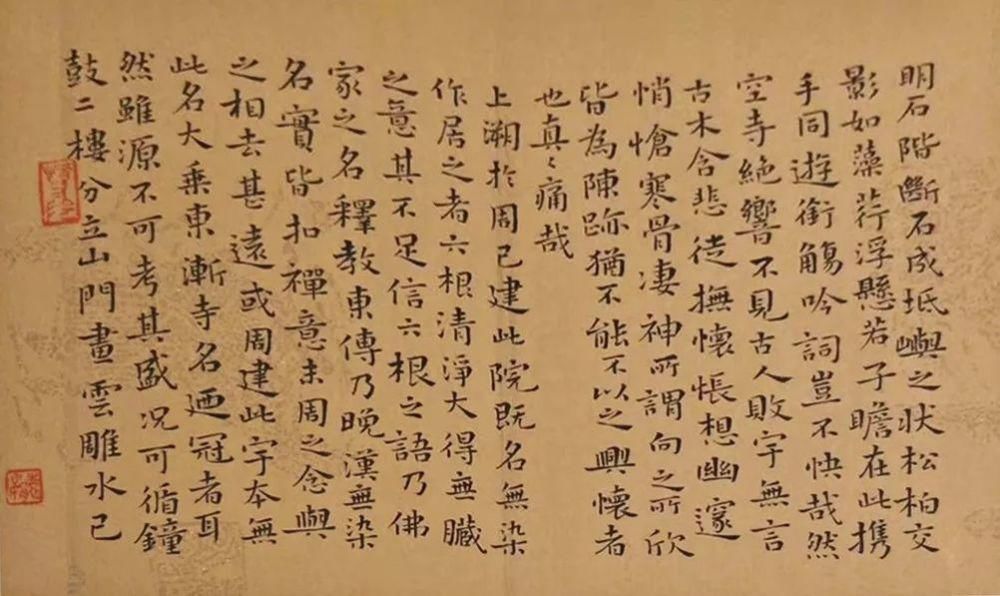 明石階斷石成坻嶼之状松柏交
影如藻荇浮懸若子瞻在此携
手同遊銜觴吟詞豈不快哉然
空寺絶響不見古人敗宇無言
古木含悲徒撫懷悵想幽邃
悄愴寒骨凄神所謂向之所欣
皆為陳跡猶不能不以之興懷者
也真々痛哉
上溯於周已建此院既名無染
作居之者六根清淨大得無臟
之意其不足信六根之語乃佛
家之名釋教東傳乃晚漢無染
名實皆扣禪意末周之念與
之相去甚遠或周建此宇本無
此名大乘東漸寺名迺冠者耳
然雖源不可考其盛况可循鐘
鼓二樓分立山門畫雲雕水已